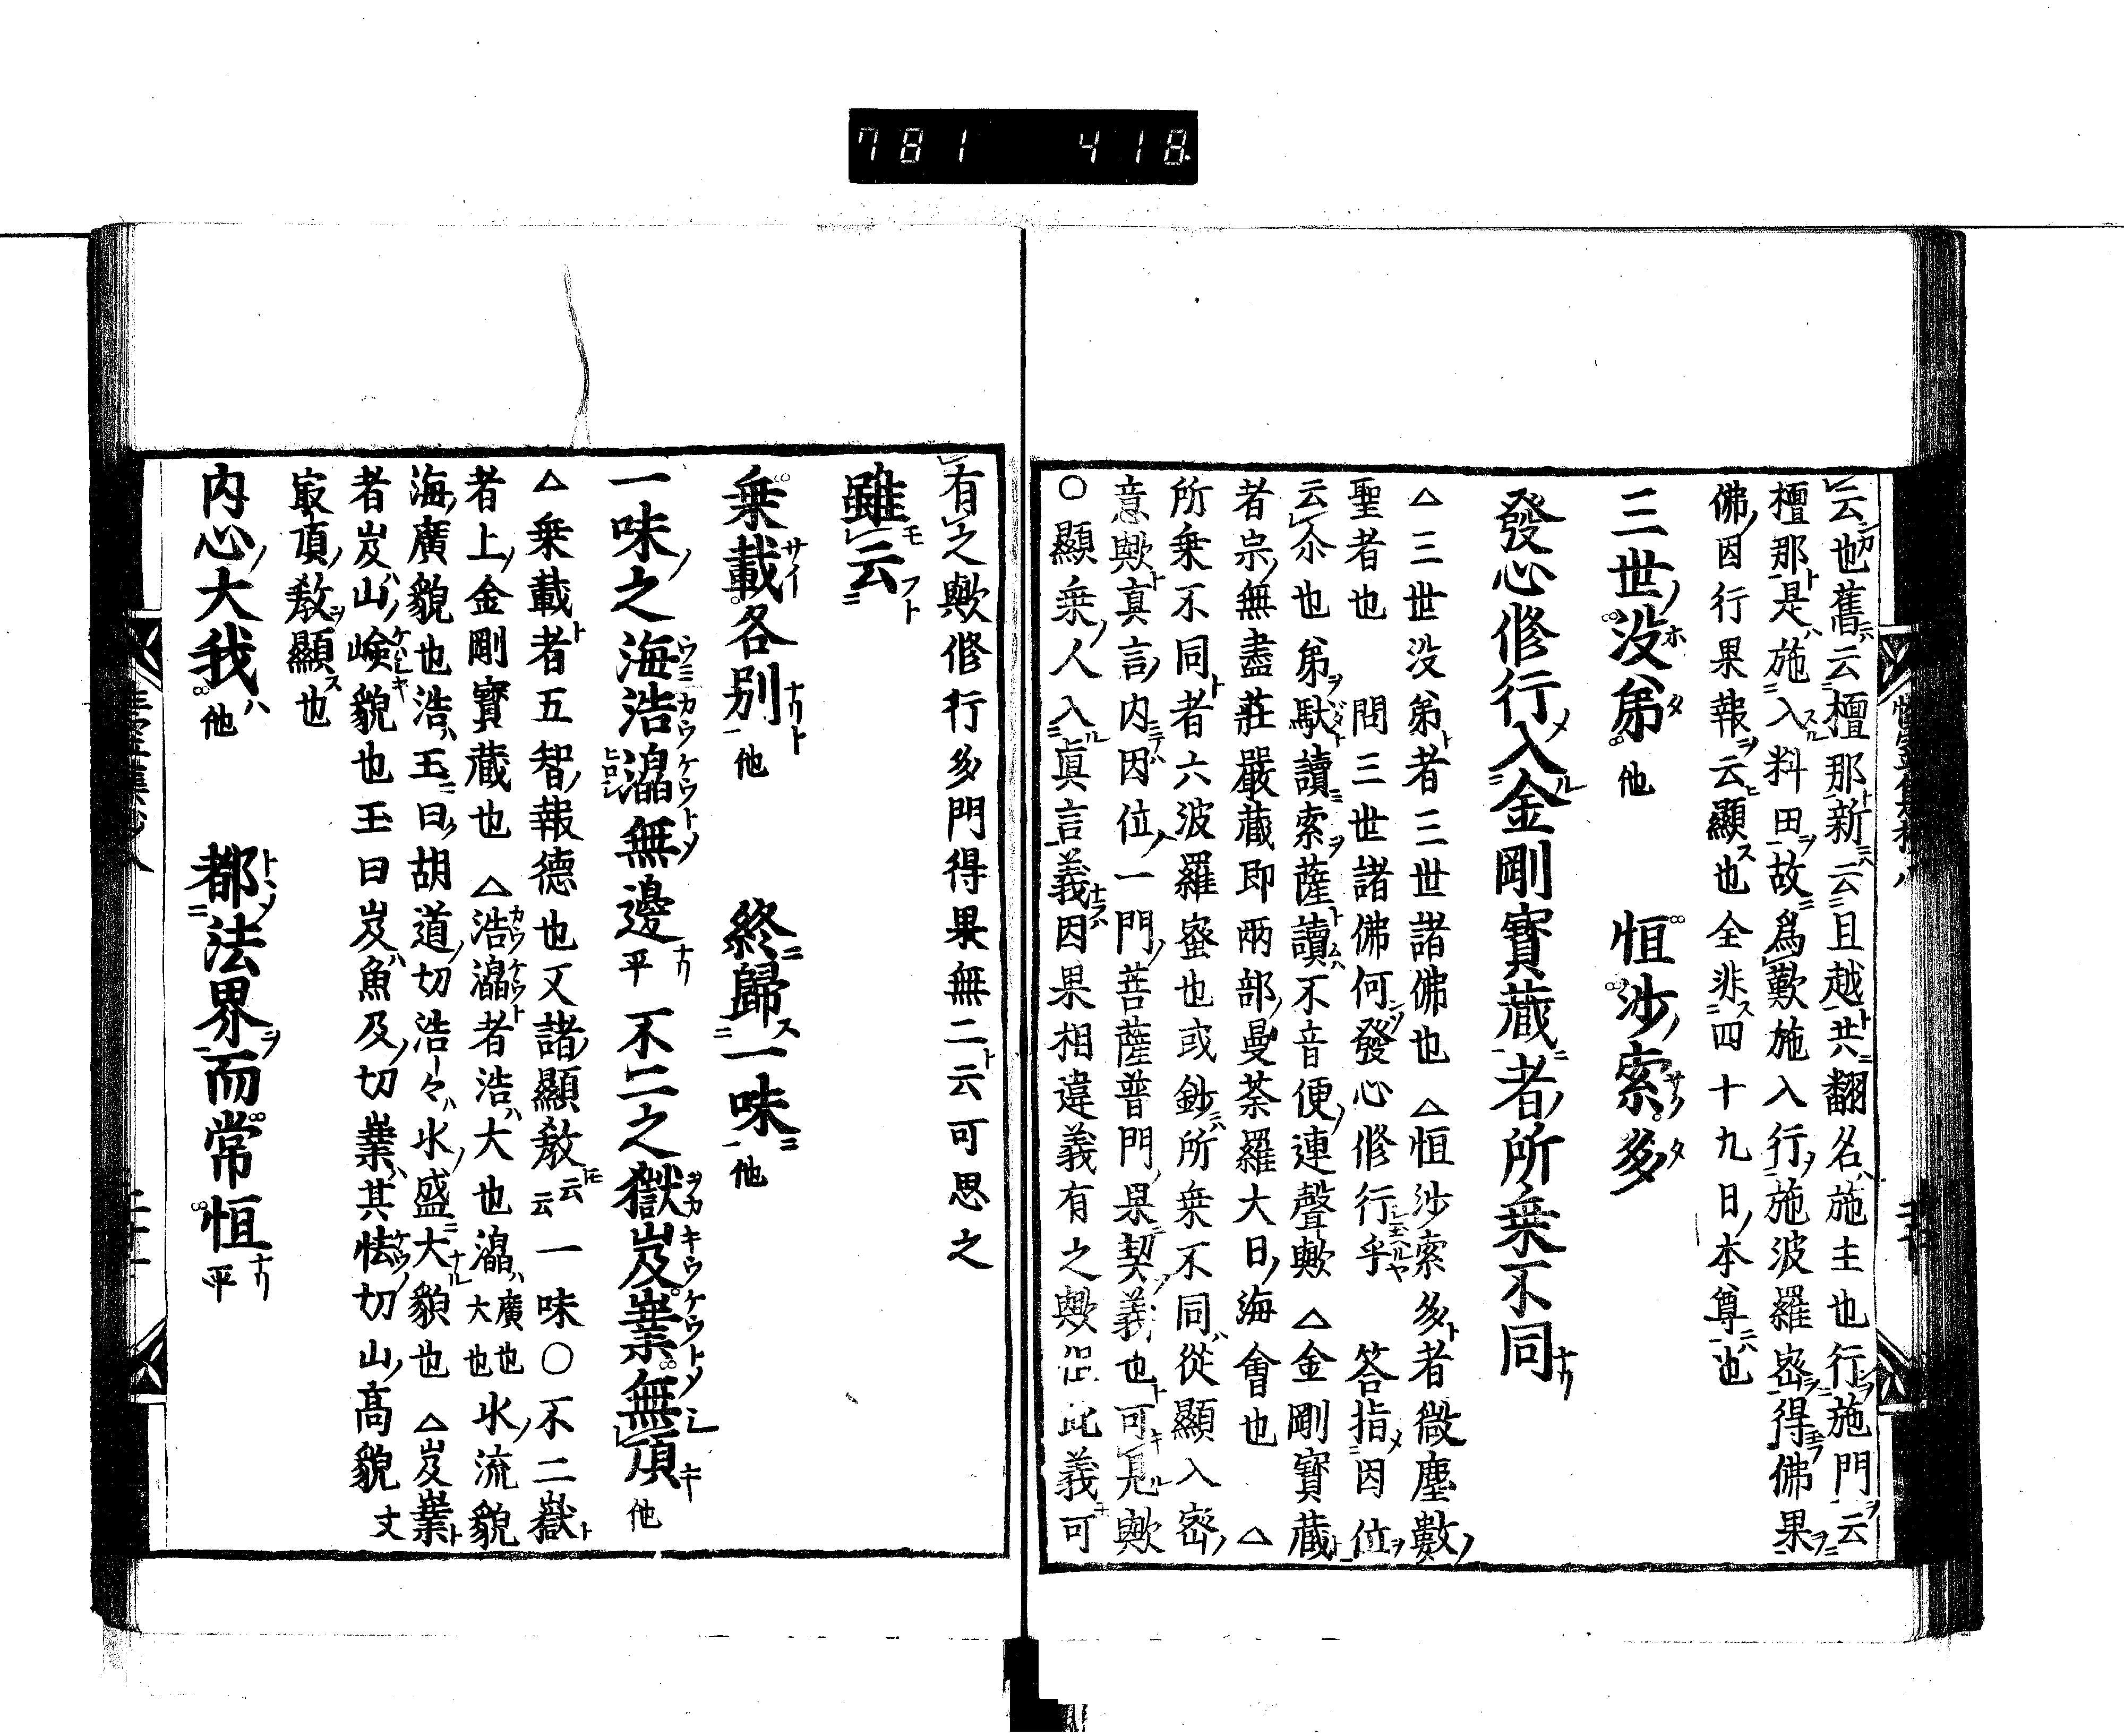 781 418
云也舊云檀那新云且越共翻名施主也行施門云
檀那是施入料田故爲歎施入行施波羅密得佛果
佛因行果報云顯也全非四十九日本尊也
三世没弟他 恒沙索多
發心修行入金剛寶蔵者所乗不同
△三世没弟者三世諸佛也 △恒沙索多者微塵數
聖者也 問三世諸佛何發心修行乎 答指因位
云尒也弟馱讀索薩讀不音便連聲歟 △金剛寶蔵
者宗無盡莊嚴蔵即兩部曼荼羅大日海會也 △
所乗不同者六波羅蜜也或鈔所乗不同從顯入密
意歟真言内因位一門菩薩普門果契義也可見歟
○顯乗人入眞言義因果相違義有之歟 此義可
有之歟修行多門得果無二云可思之
雖云
乗載各別他 終歸一味他
一味之海浩瀛無邊平 不二之嶽岌嶪無頂他
△乗載者五智報德也又諸顯教云云一味○不二嶽
者上金剛寶蔵也 △浩瀛者浩大也瀛廣也大也水流貌
海廣貌也浩玉曰胡道切浩々水盛大貌也 △岌嶪
者岌山嶮貌也玉曰岌魚及切嶪其怯切山高貌文
冣頂教顯也
内心大我他 都法界而常恒平